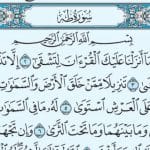 سُورَةُ طه
بِسْمِ ٱللَّهِ ٱلرَّحْمَٰنِ ٱلرَّحِيمِ
مَآ أَنزَلْنَا عَلَيْكَ ٱلْقُرْءَانَ لِتَشْقَىٰٓ ٢ إِلَّا
تَنزِيلًا مِّمَّنْ خَلَقَ ٱلْأَرْضَ وَٱلسَّمَٰوَٰتِ
عَلَى ٱلْعَرْشِ ٱسْتَوَىٰ ٥ لَهُۥ مَا فِى ٱلسَّمَٰوَٰتِ
وَمَا بَيْنَهُمَا وَمَا تَحْتَ ٱلثَّرَىٰ ٦ وَإِن تَجْهَرْ